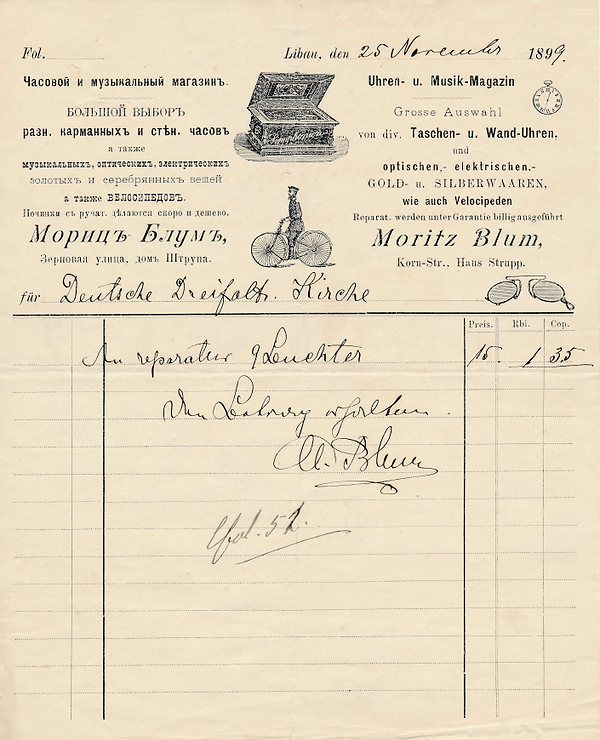 Fol.
Libau, den 25 November 1899.
Часовой и музыкальный магазинъ.
БОЛЬШОЙ ВЫБОРЪ
разн. карманныхъ и стѣн. часовъ
а также
музыкальныхъ, оптическихъ, электрическихъ
золотыхъ и серебрянныхъ вещей
а также ВЕЛОСИПЕДОВЪ.
Починки съ ручат. дѣлаются скоро и дешево.
Морицъ Блумъ,
Зерновая улица, домъ Штрупа.
Uhren- u. Musik-Magazin
Grosse Auswahl
von div. Taschen- u. Wand-Uhren,
und
optischen,- elektrischen,-
GOLD- u. SILBERWAAREN,
wie auch Velocipeden
Reparat. werden unter Garantie billig ausgeführt
Moritz Blum,
Korn-Str., Haus Strupp.
für Deutsche Dreifalt. Kirche
Preis. Rbl. Cop.
An reparatur 9 Leuchter 15. 1 35
Den Betrag erhalten.
M. Blum
fol. 52.